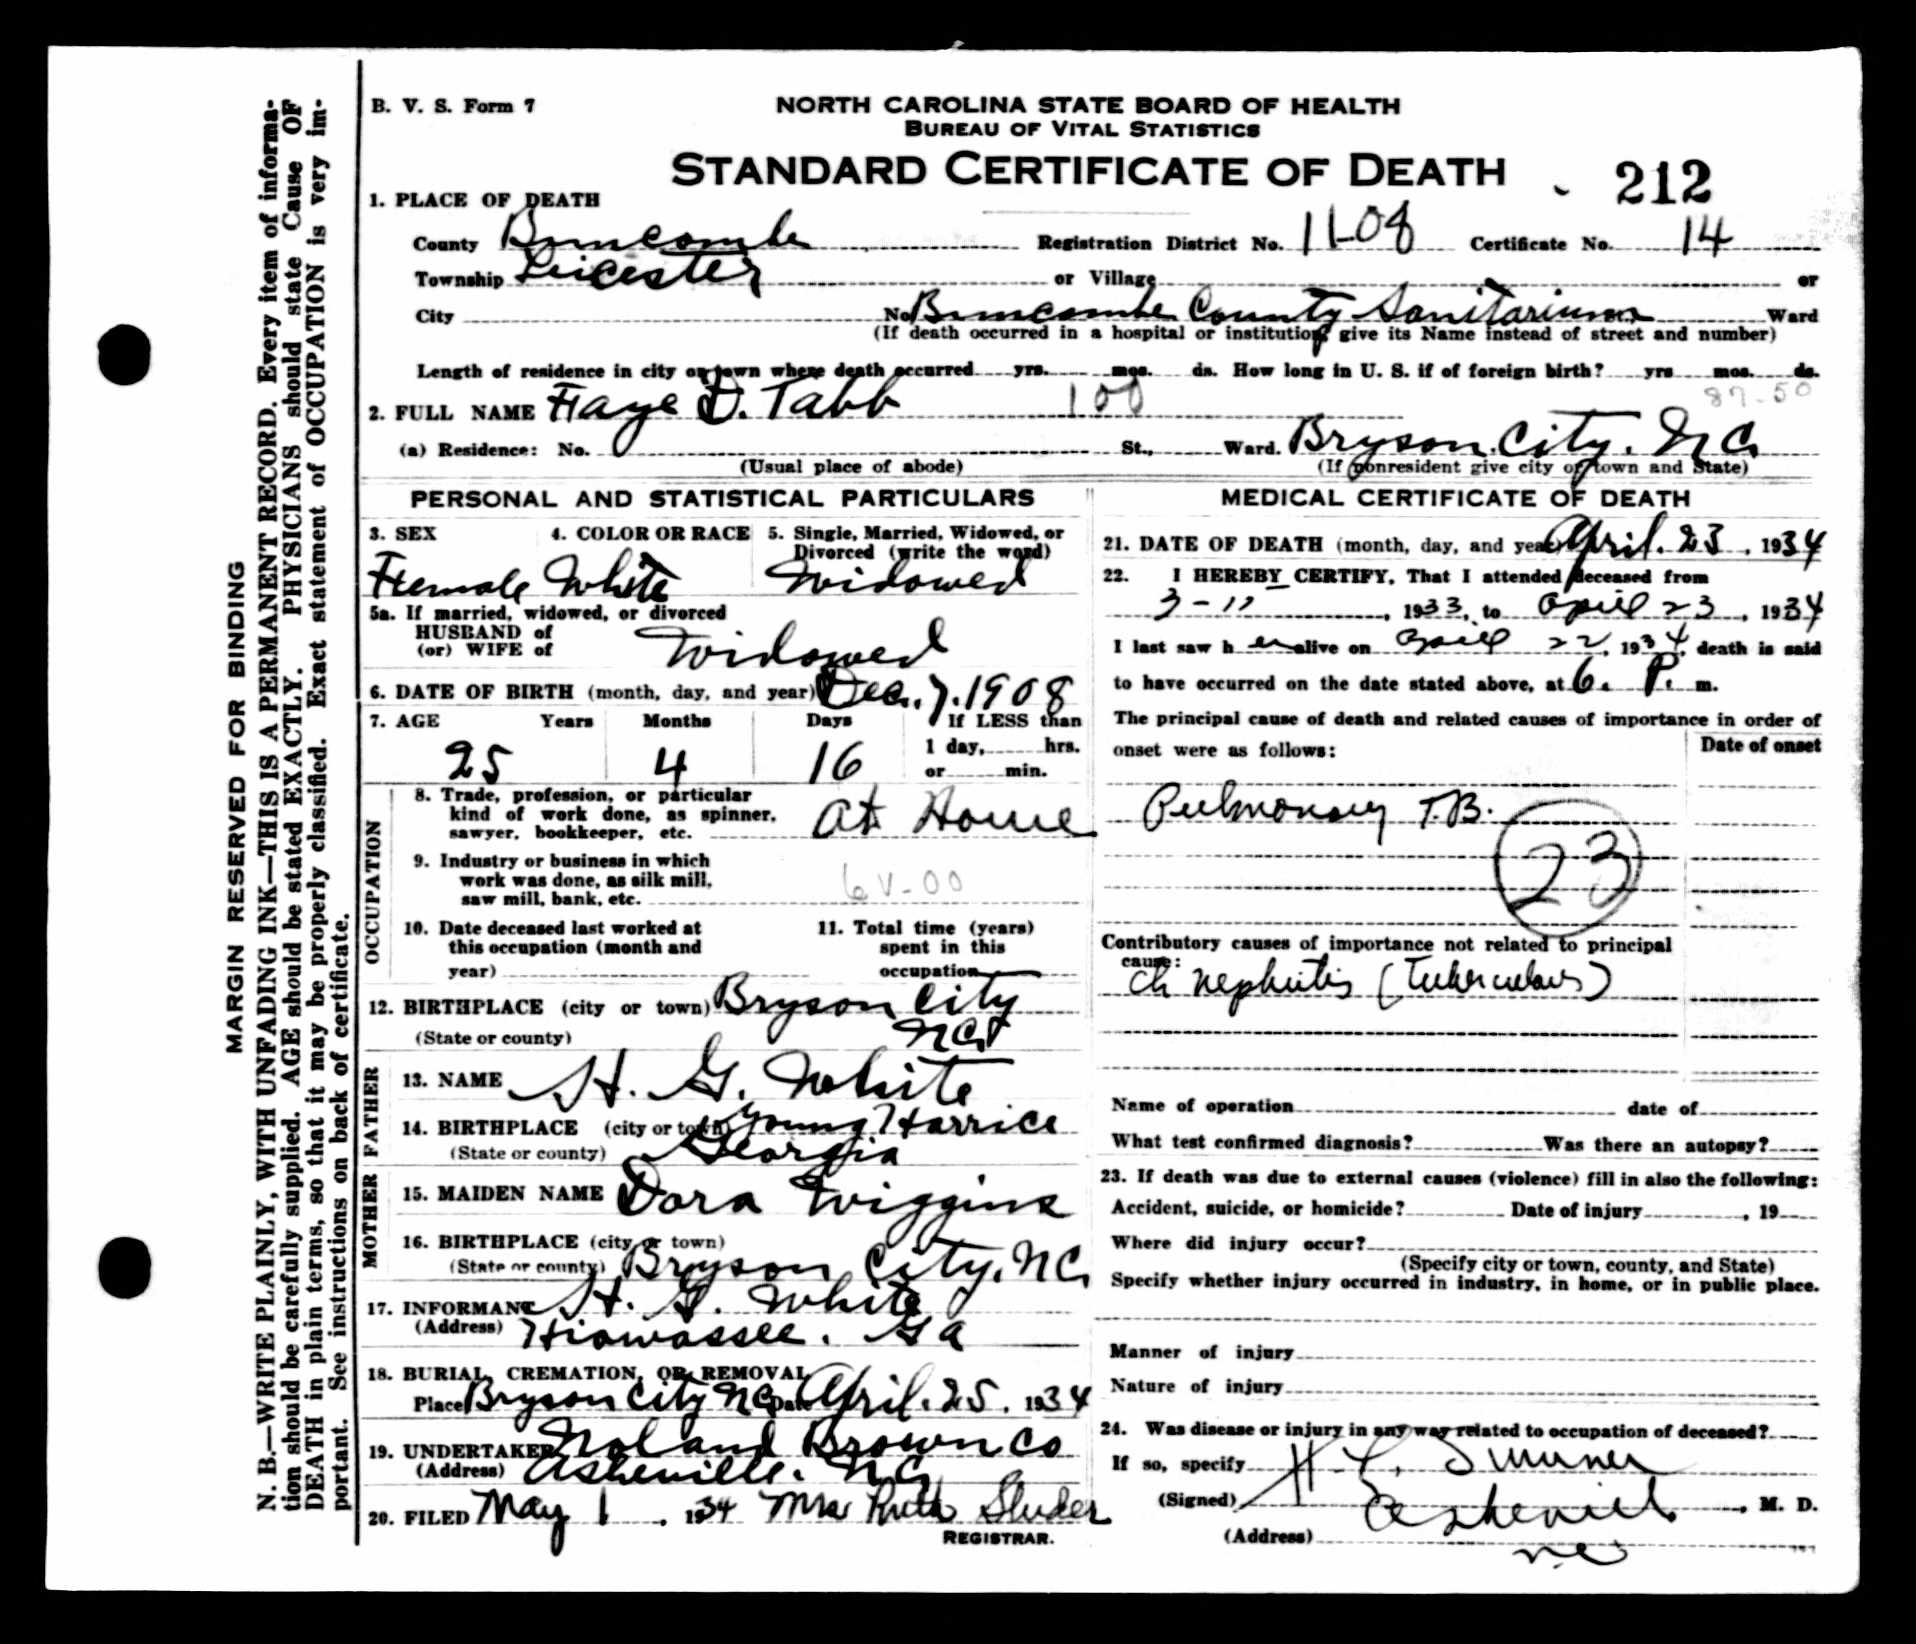 B. V. S. Form 7
NORTH CAROLINA STATE BOARD OF HEALTH
BUREAU OF VITAL STATISTICS
STANDARD CERTIFICATE OF DEATH
212
1. PLACE OF DEATH
County Buncombe Registration District No. 11-08 Certificate No. 14
Township Leicester or Village or
City No. Buncombe County Sanitarium Ward
(If death occurred in a hospital or institution, give its Name instead of street and number)
Length of residence in city or town where death occurred yrs. mos. ds. How long in U. S. if of foreign birth? yrs mos. ds.
87-50
2. FULL NAME Faye D. Tabb 100
(a) Residence: No. St., Ward. Bryson City, N.C.
(Usual place of abode) (If nonresident give city or town and State)
PERSONAL AND STATISTICAL PARTICULARS
3. SEX 4. COLOR OR RACE 5. Single, Married, Widowed, or
Divorced (write the word)
Female White Widowed
5a. If married, widowed, or divorced
HUSBAND of
(or) WIFE of Widowed
6. DATE OF BIRTH (month, day, and year) Dec. 7. 1908
7. AGE Years Months Days If LESS than
1 day, hrs.
25 4 16 or min.
OCCUPATION
8. Trade, profession, or particular
kind of work done, as spinner,
sawyer, bookkeeper, etc. at Home
9. Industry or business in which
work was done, as silk mill,
saw mill, bank, etc.
10. Date deceased last worked at
this occupation (month and
year)
11. Total time (years)
spent in this
occupation
12. BIRTHPLACE (city or town) Bryson City
(State or county) N.C.
FATHER
13. NAME H. G. White
14. BIRTHPLACE (city or town) Young Harrice
(State or county) Georgia
MOTHER
15. MAIDEN NAME Dora Wiggins
16. BIRTHPLACE (city or town)
(State or county) Bryson City, N.C.
17. INFORMANT H. G. White
(Address) Hiawassee, Ga
18. BURIAL, CREMATION, OR REMOVAL
Place Bryson City N.C. Date April. 25. 1934
19. UNDERTAKER Noland Brown Co
(Address) Asheville. N.C.
20. FILED May 1, 1934 Mrs Ruth Sluder
REGISTRAR.
MEDICAL CERTIFICATE OF DEATH
21. DATE OF DEATH (month, day, and year) April. 23, 1934
22. I HEREBY CERTIFY, That I attended deceased from
3-11, 1933, to April 23, 1934
I last saw her alive on April 22, 1934, death is said
to have occurred on the date stated above, at 6. P. m.
The principal cause of death and related causes of importance in order of
onset were as follows: Date of onset
Pulmonary T.B.
23
Contributory causes of importance not related to principal
cause:
Ch nephritis (Tuberculous)
Name of operation date of
What test confirmed diagnosis? Was there an autopsy?
23. If death was due to external causes (violence) fill in also the following:
Accident, suicide, or homicide? Date of injury , 19
Where did injury occur?
(Specify city or town, county, and State)
Specify whether injury occurred in industry, in home, or in public place.
Manner of injury
Nature of injury
24. Was disease or injury in any way related to occupation of deceased?
If so, specify
(Signed) H. L. Sumner, M. D.
(Address) Asheville
N.C.
MARGIN RESERVED FOR BINDING
N. B.—WRITE PLAINLY, WITH UNFADING INK—THIS IS A PERMANENT RECORD. Every item of informa-
tion should be carefully supplied. AGE should be stated EXACTLY. PHYSICIANS should state Cause OF
DEATH in plain terms, so that it may be properly classified. Exact statement of OCCUPATION is very im-
portant. See instructions on back of certificate.